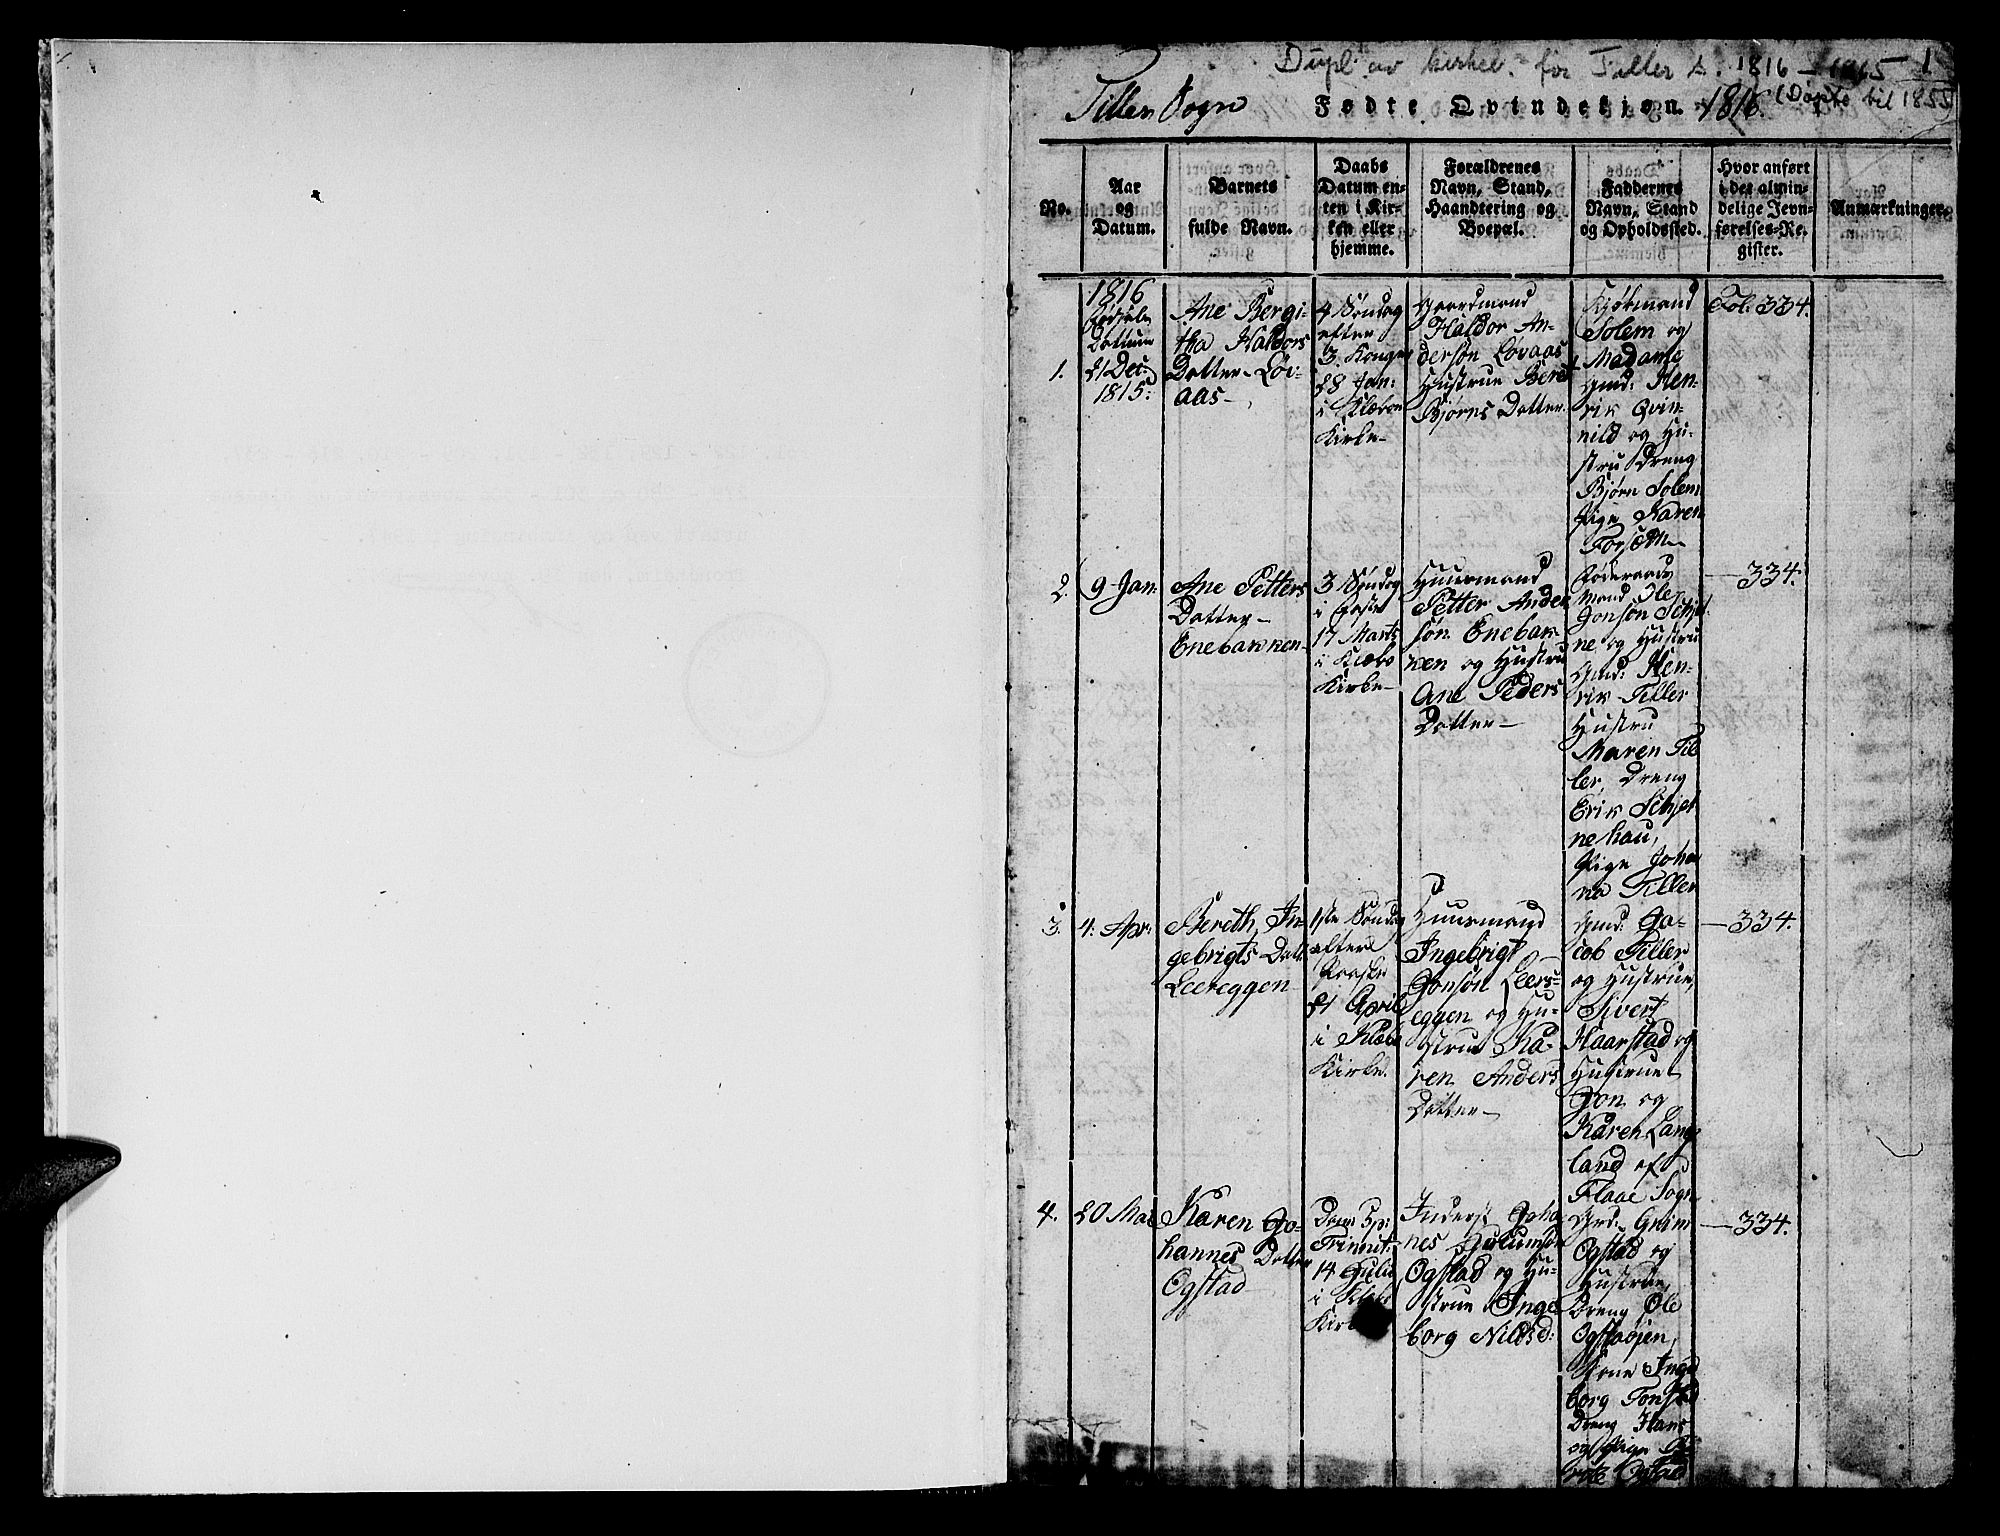 Dupl av kirkeb. for Tiller s. 1816 - 1815 - 1
(Døpte til 1855)
Tiller Sogn Fødte Qvindekiøn. 1816.
No.
Aar
og
Datum.
Barnets
fulde Navn.
Daabs
Datum en-
ten i Kir-
ken eller
hjemme.
Forældrenes
Navn, Stand,
Haandtering og
Boepæl.
Faddernes
Navn, Stand
og Opholdssted.
Hvor anført
i det almin-
delige Jevn-
førelses-Re-
gister.
Anmærkninger.
1.
1816
Datum
21 Dec:
1815.
Ane Bergi-
tha Haldors
Datter Løv-
aas
4 Søndag
efter
3 Konger
28 Jan:
i Klæboe
Kirke
Gaardmand
Haldor An-
dersøn Løvaas
Hustrue Beret
Bjørns Datter.
Kjøbmand
Solem og
Madame
Gmd: Hen-
rik Qvin-
nild og Hu-
stru Dreng
Bjørn Solem
Pige Karen
Forsæth
Fol. 334.
2.
9 Jan.
Ane Petters
Datter
Enebakken
3 Søndag
i Faste
17 Marts
i Klæbo
Kirke
Huusmand
Petter Ander
søn Enebak-
ken og Hustru
Ane Peders
Datter
Føderaads
mand Ole
Jonsøn Schjet
ne og Hustru
Gmd: Hen-
rik Tiller
Hustru
Maren Til
ler, Dreng
Erik Schjet
nehau,
Pige Johan
na Tiller
334.
3.
4. Apr:
Bereth In-
gebrigts Datt
Leereggen
1ste Søndag
efter
Paaske
21 April
i Klæbo
Kirke.
Huusmand
Ingebrigt
Jonsøn Leers-
eggen og Hu-
strue Ka-
ren Anders
Datter
Gmd: Ja-
cob Tiller
og Hustrue,
Sivert
Haarstad og
Hustrue
Jon og
Karen Lang
land af
Flaae Sogn
334.
4.
20 Mai
Karen Jo-
hannes Datter
Ogstad
Dom: 5 p:
Trinnit:
14 Julii
i Klæbo
Kirke
Inderst Joha
nes
Ogstad og Hu-
strue Inge
borg Nilsd:
Gmd: Grim
Ogstad og
Hustrue,
Dreng Ole
Ogstaøjen,
Kone Inge
borg Tonstad
Dreng Hans
og Pige
Ogstad
334.